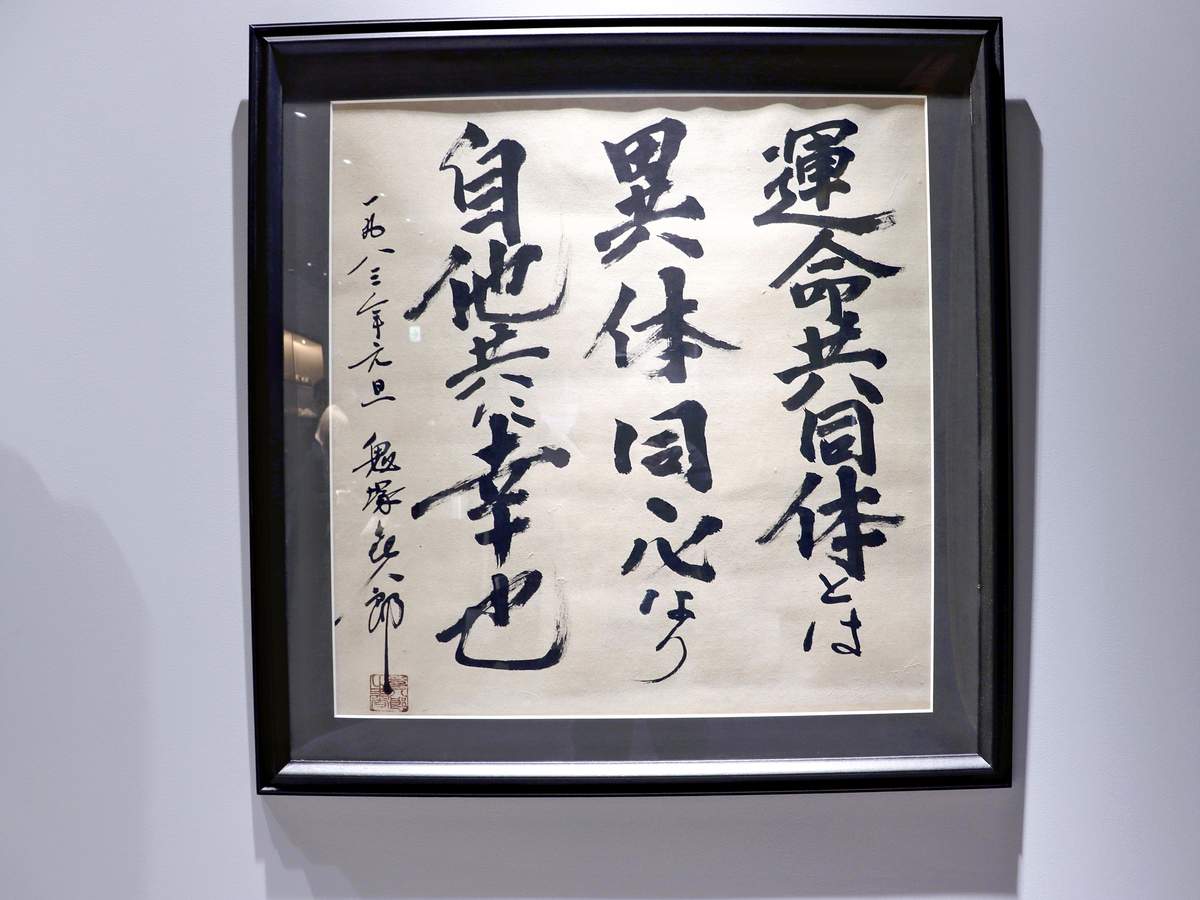 運命共同体とは
異体同心なり
自他共に幸也
一九八三年元旦 鬼塚喜八郎